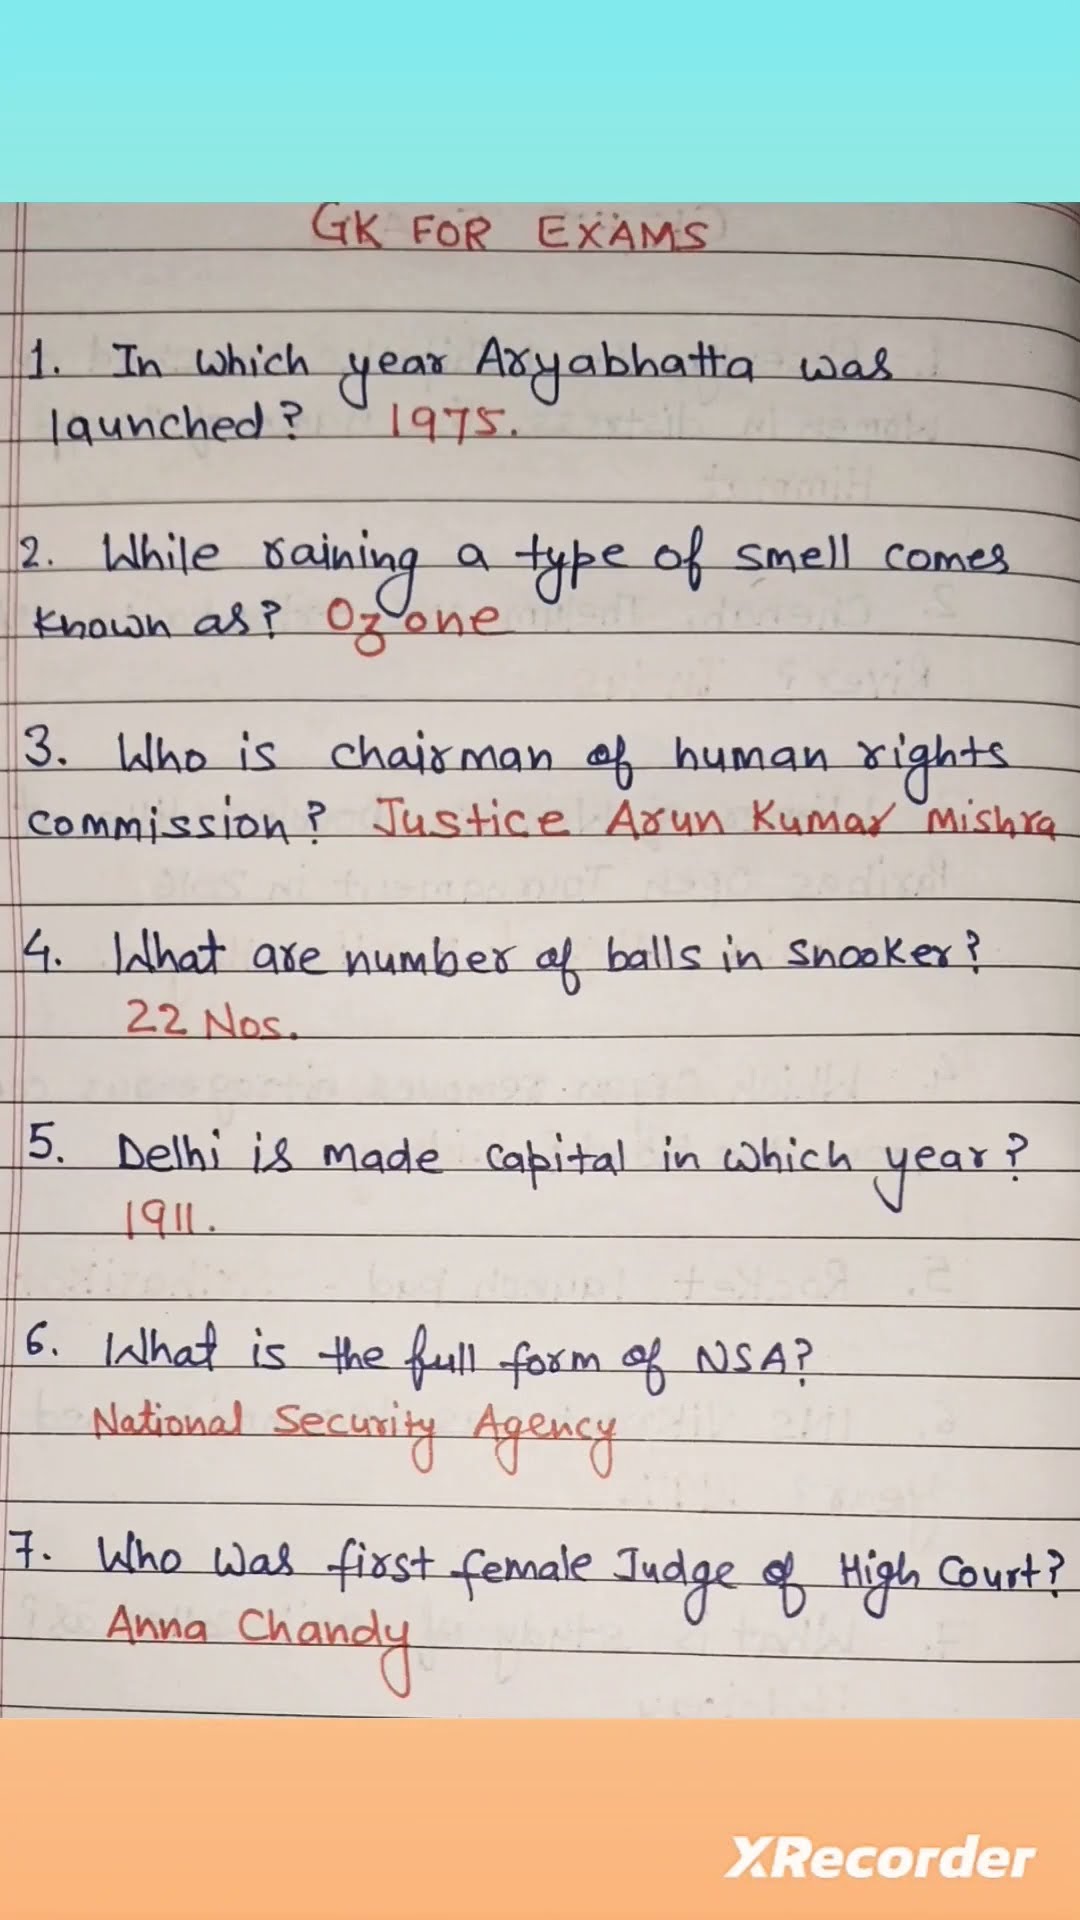 GK FOR EXAMS
1. In which year Aryabhatta was
launched? 1975.
2. While raining a type of smell comes
known as? Ozone
3. Who is chairman of human rights
commission? Justice Arun Kumar Mishra
4. What are number of balls in snooker?
22 Nos.
5. Delhi is made capital in which year?
1911.
6. What is the full form of NSA?
National Security Agency
7. Who was first female Judge of High Court?
Anna Chandy
XRecorder